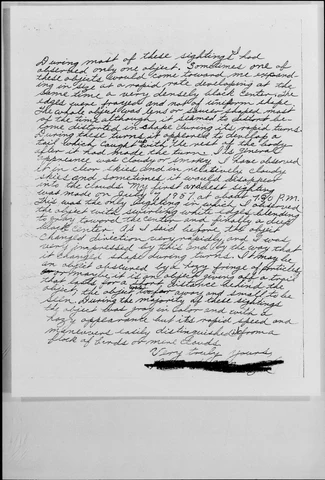 During most of these sightings I had
observed only one object. Sometimes one of
these objects would come toward me expand-
ing in size at a rapid rate developing at the
same time a very dense, black center. The
edges were frayed and not of uniform shape.
The whole object was lens or saucer shaped most
of the time although it seemed to distort be-
come distorted in shape during its rapid turns.
During these turns it appeared to develop a
tail which caught up with the rest of the body
after it had made the turn. The general
appearance was cloudy or smokey. I have observed
it in clear skies and in relatively cloudy
skies and sometimes it would disappear
into the clouds. My first sighting
was made on July 7, 1957, at about 7:30 P.M.
This was the only sighting at which I observed
the object with white edges, blending
to grey toward the center and finally a dense
black center. As I said before the object
changed direction very rapidly and I was
very impressed by this and by the way that
it changed shape during turns. It may be
an object obscured by a fringe of particles
or maybe it is an object giving off a
that lasts for a distance behind the
object, the object far away and small to be
seen. During the majority of these sightings
the object was gray in color and with a
hazy appearance but its rapid speed and
maneuvers easily distinguished it from a
flock of birds or mere clouds.
Very truly yours